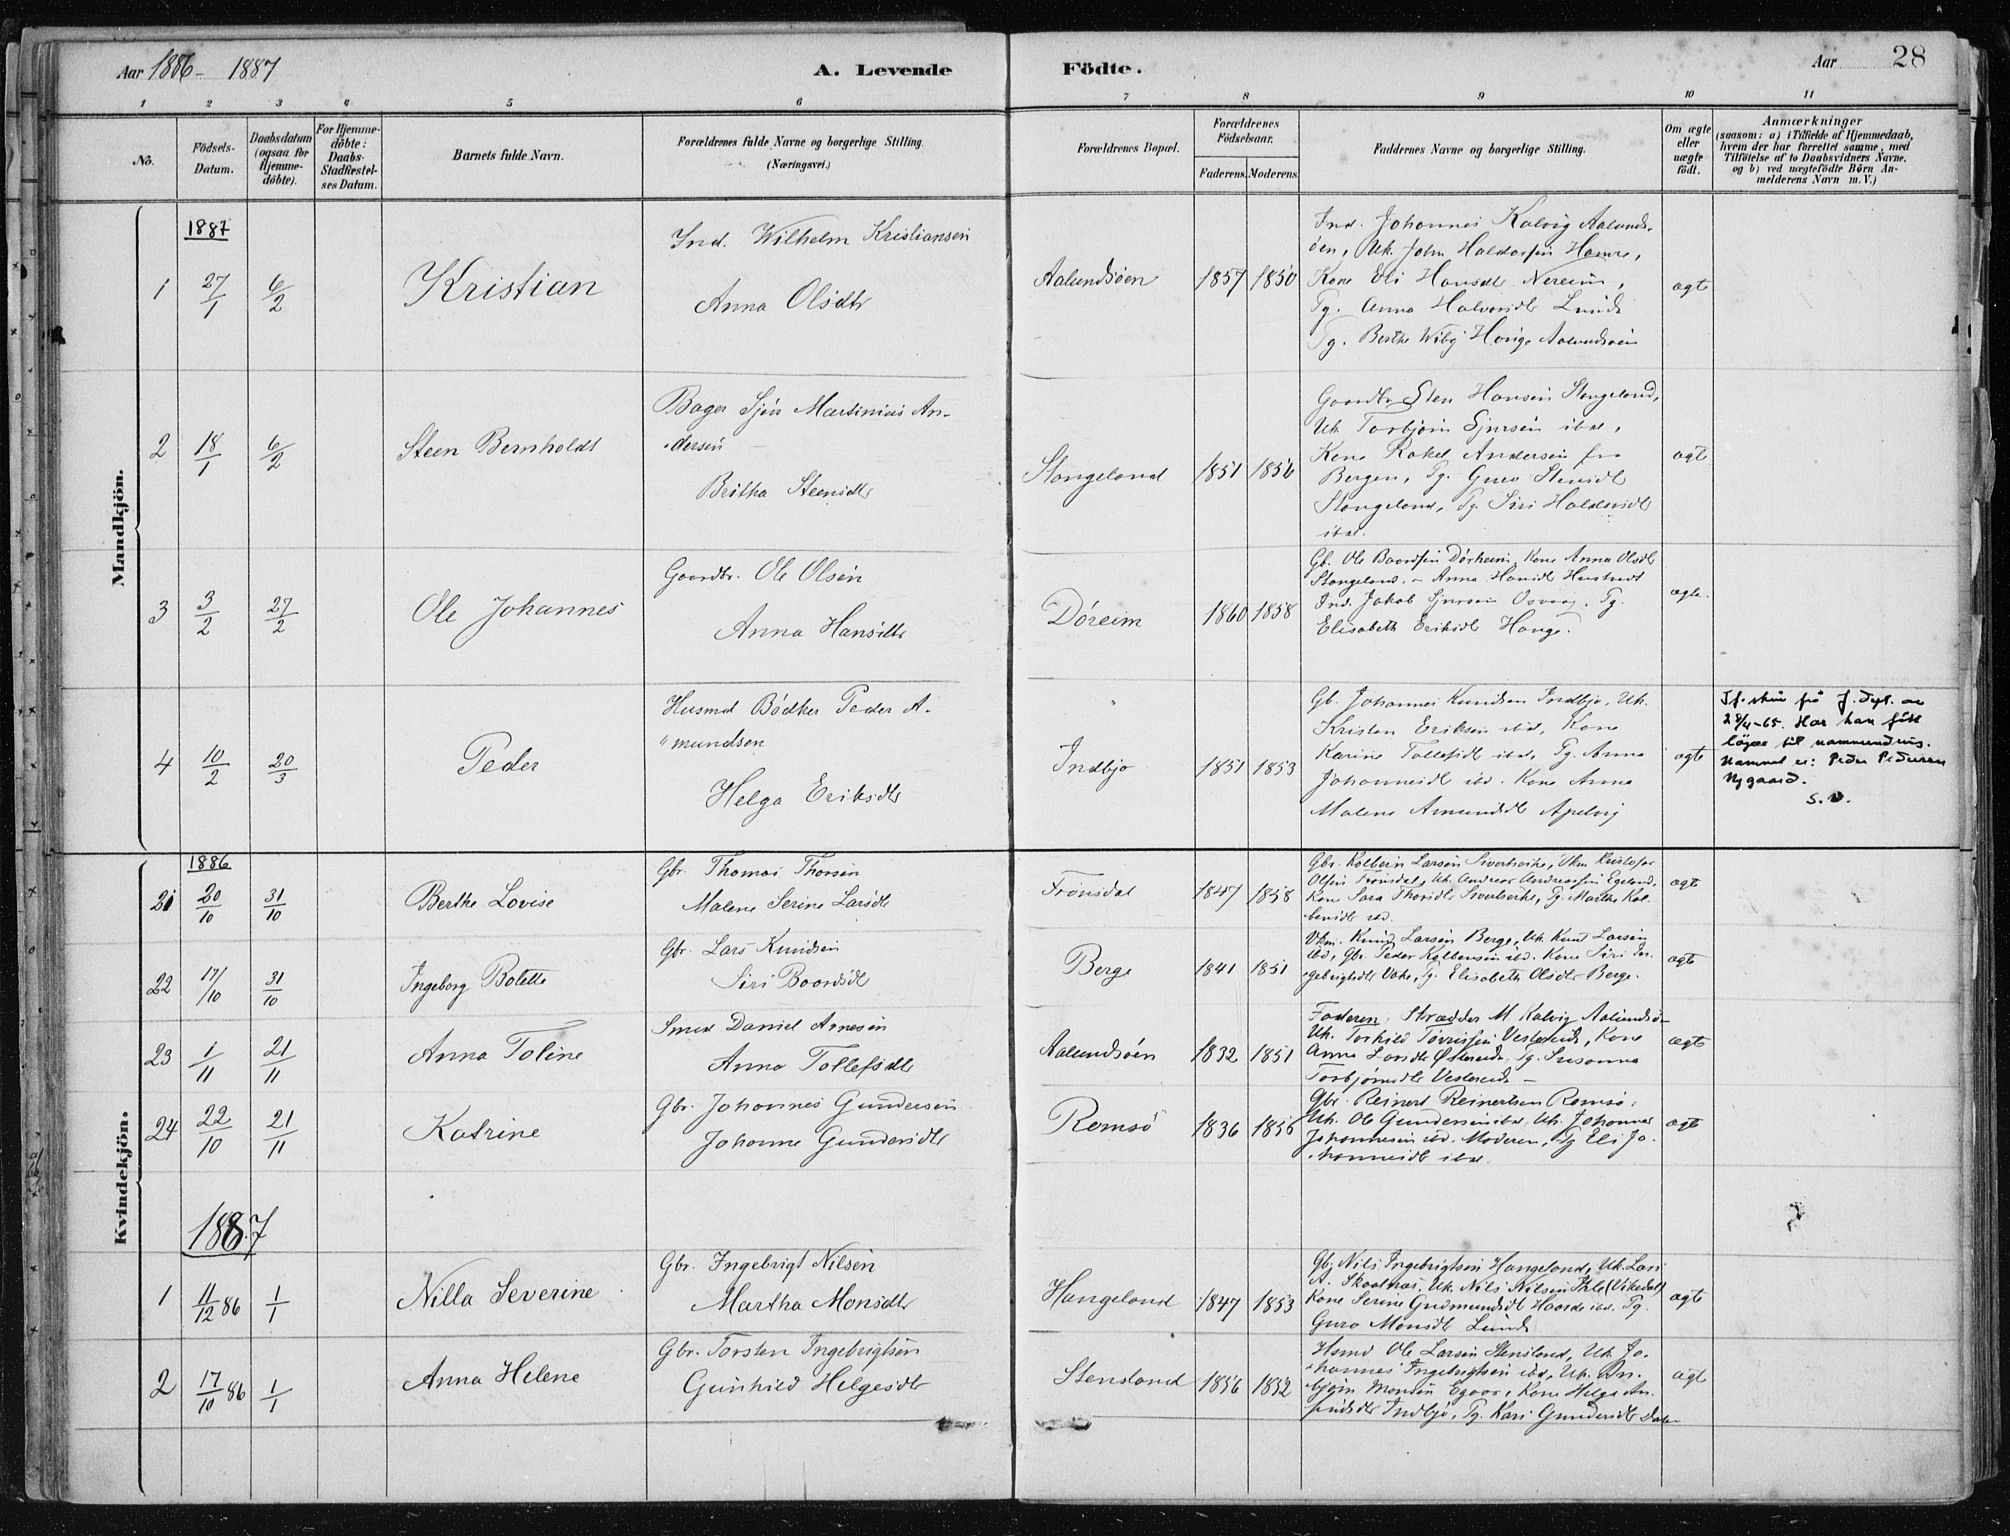 Aar 1886- 1887
A. Levende
Födte.
Aar
28
1 2 3 4 5 6 7 8 9 10 11
No.
Födsels-
Datum.
Daabsdatum
(ogsaa for
Hjemme-
döbte).
For Hjemme-
döbte:
Daabs-
Stadfæstel-
ses Datum.
Barnets fulde Navn.
Forældrenes fulde Navne og borgerlige Stilling.
(Næringsvei.)
Forældrenes Bopæl.
Forældrenes
Födselsaar.
Faderens. Moderens.
Faddernes Navne og borgerlige Stilling.
Om ægte
eller
uægte
födt.
Anmærkninger
(saasom: a) i Tilfælde af Hjemmedaab,
hvem der har forrettet samme, med
Tilföielse af to Daabsvidners Navne,
og b) ved uægtefödte Börn An-
melderens Navn m. V.)
Mandkjön.
1887
1 27/1 6/2
Kristian
Ind. Wilhelm Kristiansen
Anna Olsdtr
Aalundsöen
1857 1850
Ind. Johannes Kalvig Aalunds-
öen, Uk. John Haldorsen Hamre,
Kone Eli Hansdtr Nereim,
Pg. Anna Halvorsdtr Lunde
Pg. Berthe Wiby Houge Aalundsöen
ægte
2 18/1 6/2
Steen Bernholdt
Bager Sjur Martinius An-
dersen
Britha Steensdtr
Stangeland
1851 1856
Gaardbr. Sten Hansen Stangeland,
Uk. Torbjörn Sjursen ibd,
Kone Rakel Andersen fra
Bergen, Pg. Guro Stensdtr
Stangeland, Pg. Siri Haldorsdtr
ibd.
ægte
3 3/2 27/2
Ole Johannes
Gaardbr. Ole Olsen
Anna Hansdtr
Döreim
1860 1858
Gb. Ole Baardsen Dörheim, Kone Anna Olsdtr
Stangeland, - Anna Hansdtr Hustvedt
Ind. Jakob Sjursen Osvaag, Pg.
Elisabeth Eriksdtr Hauge.
ægte.
4 10/2 20/3
Peder
Husmd Bödker Peder A-
mundsen
Helga Eriksdtr
Indbjo
1851 1853
Gb. Johannes Knudsen Indbjo, Uk.
Kristen Eriksen ibd, Kone
Karine Tollefsdtr ibd, Pg. Anna
Johannesdtr ibd. Kone Anna
Malene Amundsdtr Apelvig
ægte
Jf. skriv frå J. dept. av
28/4-65. Har han fått
löyve til namnendring.
Namnet er: Peder Pedersen
Nygaard.
S.V.
Kvindekjön.
1886
21 20/10 31/10
Berthe Lovise
Gbr. Thomas Thorsen
Malene Serine Larsdtr
Frönsdal
1847 1858
Gbr. Kolbein Larsen Sivertsvike, Ukm Kristofer
Olsen Frönsdal, Uk. Andreas Andreassen Egeland,
Kone Sara Thorsdtr Sivertsvike, Pg. Marthe Kol-
bensdtr ibd.
ægte
22 17/10 31/10
Ingeborg Bolette
Gbr. Lars Knudsen
Siri Baardsdtr
Berge
1841 1851
Ukm. Knud Larsen Berge, Uk. Knut Larsen
ibd, Gbr. Peder Kolbensen ibd. Kone Siri In-
gebrigtsdtr Vake, Pg. Elisabeth Olsdtr Berge.
ægte
23 1/11 21/11
Anna Toline
Smed Daniel Arnesen
Anna Tollefsdtr
Aalundsöen
1832 1851
Faderen, Skrædder M. Kalvig Aalundsö-
Uk. Torkild Tovrisen Vestereide, Kone
Anna Larsdtr Östereide, Pg. Susanna
Torbjörnsdtr Vestereide -
ægte
24 22/10 21/11
Katrine
Gbr. Johannes Gundersen
Johanne Gundersdtr
Romsö
1836 1856
Gbr. Reinert Reinertsen Romsö,
Uk. Ole Gundersen ibd, Uk. Johannes
Johannesen ibd. Moderen, Pg Eli Jo-
hannesdtr ibd.
ægte
1887
1 11/12 86 1/1
Nilla Severine
Gbr. Ingebrigt Nilsen
Martha Monsdtr
Hangeland
1847 1853
Gb. Nils Ingebrigtsen Hangeland, Uk. Lars
A. Skaalnas, Uk. Nils Nilsen Ihle (Vikedal)
Kone Serine Gudmundsdtr Haarde ibd, Pg.
Guro Monsdtr Lunde
ægte
2 17/10 86 1/1
Anna Helene
Gbr. Torsten Ingebrigtsen
Gunhild Helgesdtr
Stensland
1856 1852
Husmd Ole Larsen Stensland, Uk. Jo-
hannes Ingebrigtsen ibd, Uk. An-
björn Monsen Egaas, Kone Helga An-
findsdtr Indbjo, Pg. Kari Gundersdtr Dale
ægte